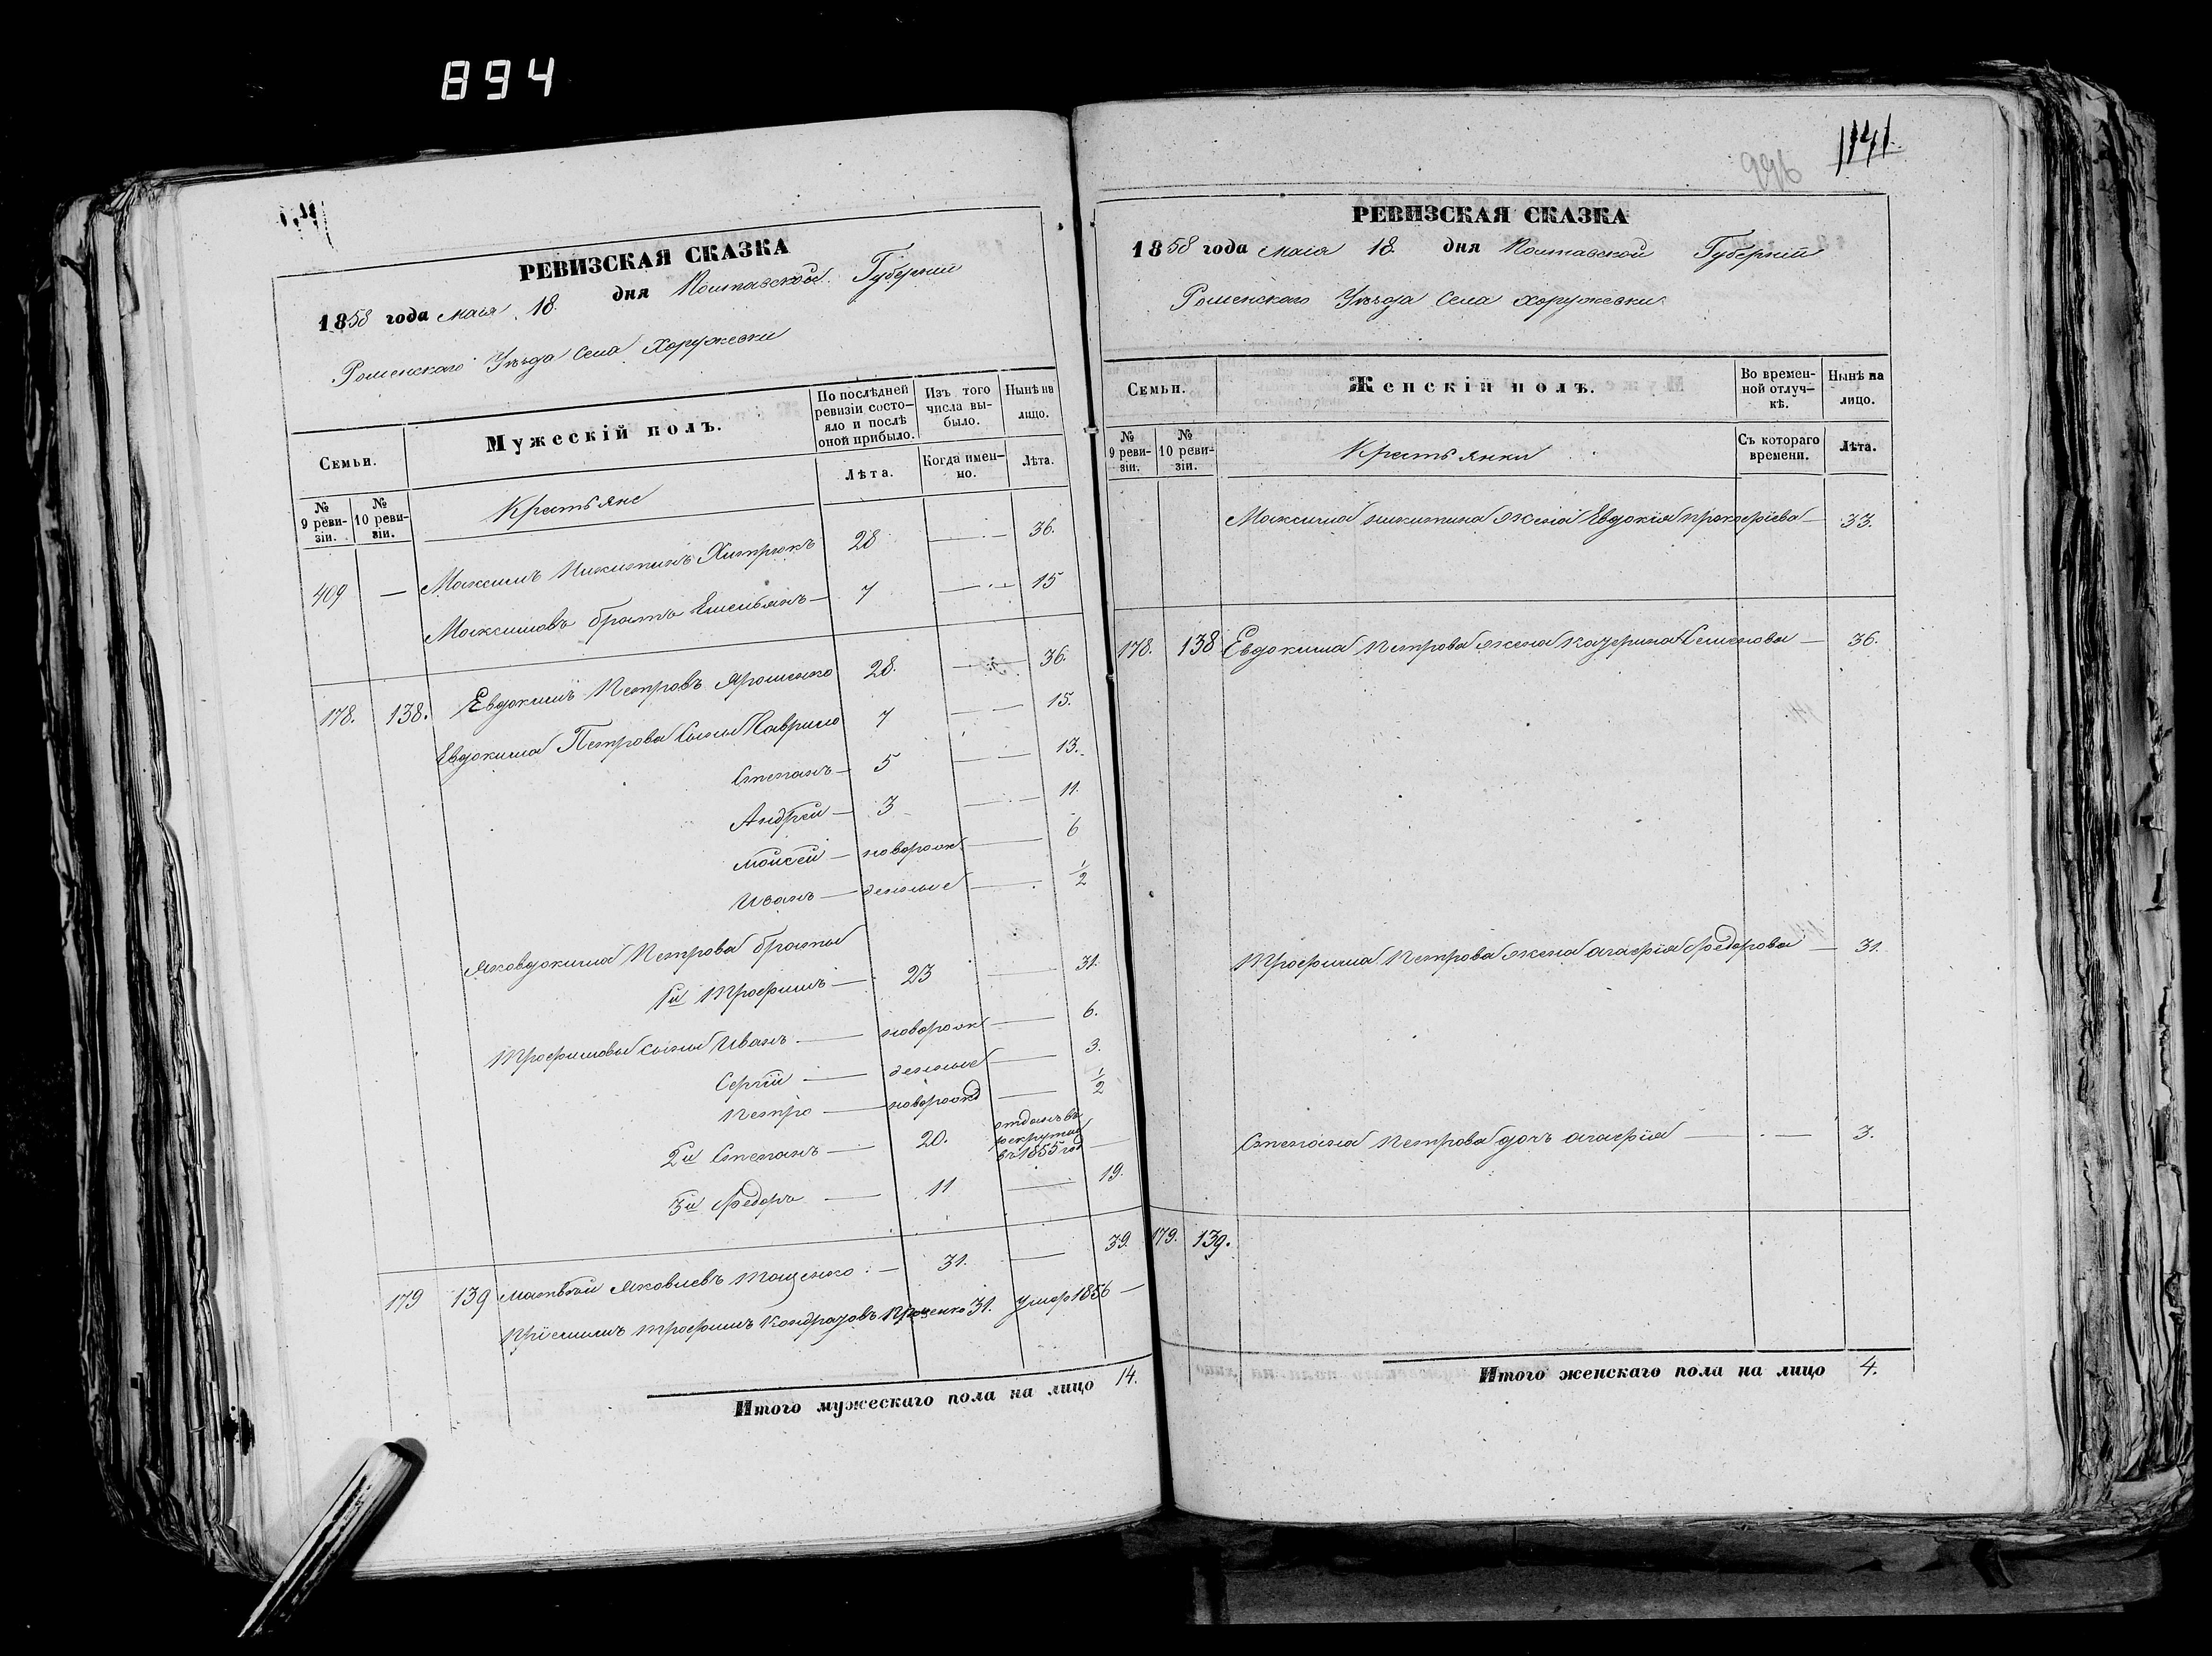 894
РЕВИЗСКАЯ СКАЗКА
1858 года маія 18. дня Полтавской Губерніи
Роменскаго Уѣзда Села Хоружевки
Семьи.
Мужескій полъ.
По послѣдней ревизіи состояло и послѣ оной прибыло.
Изъ того числа выбыло.
Нынѣ на лицо.
№ 9 ревизіи.
№ 10 ревизіи.
Крестьяне
Лѣта.
Когда именно.
Лѣта.
409 — Максимъ Никитинъ Хитрюкъ 28 — 36.
Максимовъ братъ Емельянъ — 7 — 15
178. 138. Евдокимъ Петровъ Ярошенко 28. — 36.
Евдокима Петрова сыны Гаврило 7 — 15.
Степанъ — 5 — 13.
Андрей — 3 — 11.
Мойсей — новорож — 6
Иванъ — денные — 1/2
Явдокима Петрова братья
1й Трофимъ — 23 — 31.
Трофимовы сыны Иванъ — новорож — 6.
Сергій — денные — 3.
Петро — новорожд — 1/2
2й Степанъ — 20. отданъ въ рекруты въ 1855 год —
3й Федоръ — 11 — 19.
179 139 Матвѣй Яковлевъ Тощенко — 31. — 39.
Пріемышъ Трофимъ Кондратовъ Проценко 31. умер 1856 —
Итого мужескаго пола на лицо 14.
996
1141.
РЕВИЗСКАЯ СКАЗКА
1858 года маія 18. дня Полтавской Губерніи
Роменскаго Уѣзда Села Хоружевки
Семьи.
Женскій полъ.
Во временной отлучкѣ.
Нынѣ на лицо.
№ 9 ревизіи.
№ 10 ревизіи.
Крестьянки
Съ котораго времени.
Лѣта.
Максима Никитина жена Евдокія Прокофіева — 33.
178. 138 Евдокима Петрова жена Катерина Семенова — 36.
Трофима Петрова жена Агафія Федорова — 31.
Степана Петрова дочь Агафія — 3.
179. 139.
Итого женскаго пола на лицо 4.